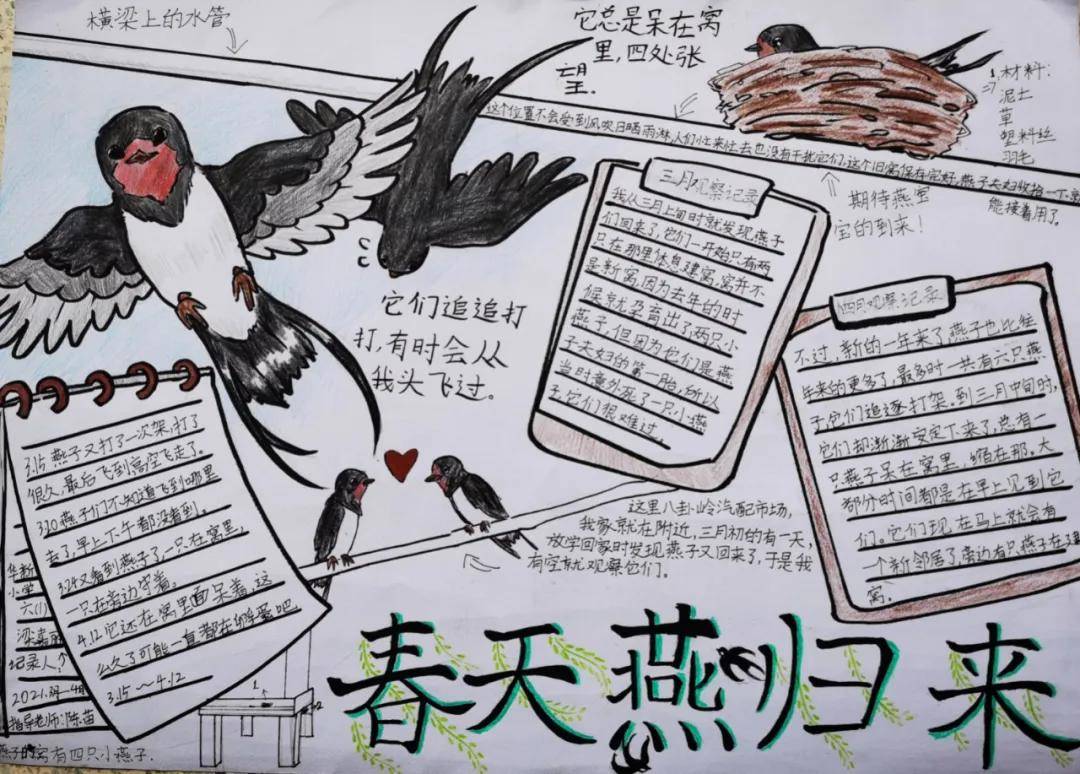 横梁上的水管
它总是呆在窝
里,四处张
望.
材料:
泥土
草
塑料丝
羽毛
这个位置不会受到风吹日晒雨淋,人们忙来忙去也没有干扰它们,这个旧窝保存完好,燕子夫妇收拾一下就
能接着用了。
期待燕宝
宝的到来!
三月观察记录
我从三月上旬时就发现燕子
们回来了,它们一开始只有两
只在那里休息建窝,窝并不
是新窝,因为去年的9时
候就孕育出了两只小
燕子,但因为它们是燕
子夫妇的第一胎,所以
当时意外死了一只小燕
子,它们很难过。
四月观察记录
不过,新的一年来了,燕子也比往
年来的更多了,最多时一共有六只燕
子,它们追逐打架,到三月中旬时,
它们却渐渐安定下来了,总有一
只燕子呆在窝里,缩在那。大
部分时间都是在早上见到它
们。它们现在马上就会有
一个新邻居了,旁边有只燕子在建
窝。
它们追追打
打,有时会从
我头飞过。
这里八卦岭汽配市场,
我家就在附近,三月初的有一天,
放学回家时发现燕子又回来了,于是我
有空就观察它们。
3.15 燕子又打了一次架,打了
很久,最后飞到高空飞走了。
3.20 燕子们不知道飞到哪里
去了,早上下午都没看到。
3.24 又看到燕子了一只在窝里,
一只在旁边守着。
4.12 它还在窝里面呆着,这
么久了可能一直都在孵蛋吧
3.15~4.12
华新
小学
六(1)
梁嘉
记录人
指导老师:陈苗
燕子的窝有四只小燕子.
春天燕归来